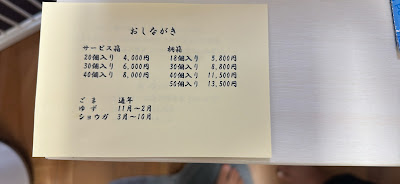 おしながき
サービス箱　桐箱
20個入り　4,000円　18個入り　5,800円
30個入り　6,000円　30個入り　8,800円
40個入り　8,000円　40個入り　11,500円
50個入り　13,500円
ごま　通年
ゆず　11月～2月
ショウガ　3月～10月